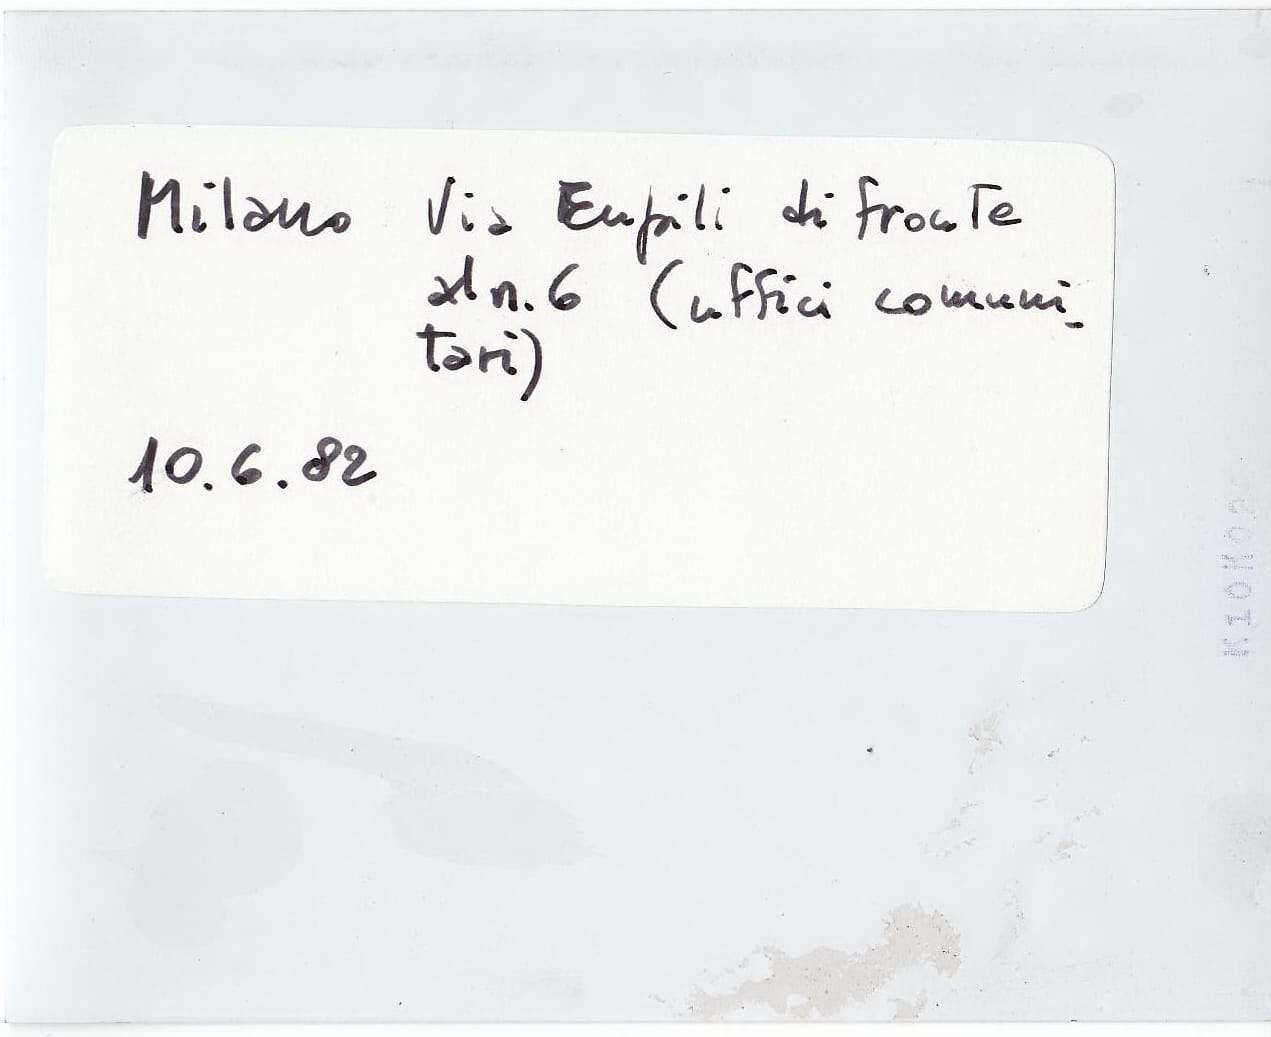 Milano Via Eupili di fronte
al n. 6 (uffici comuni-
tari)
10.6.82